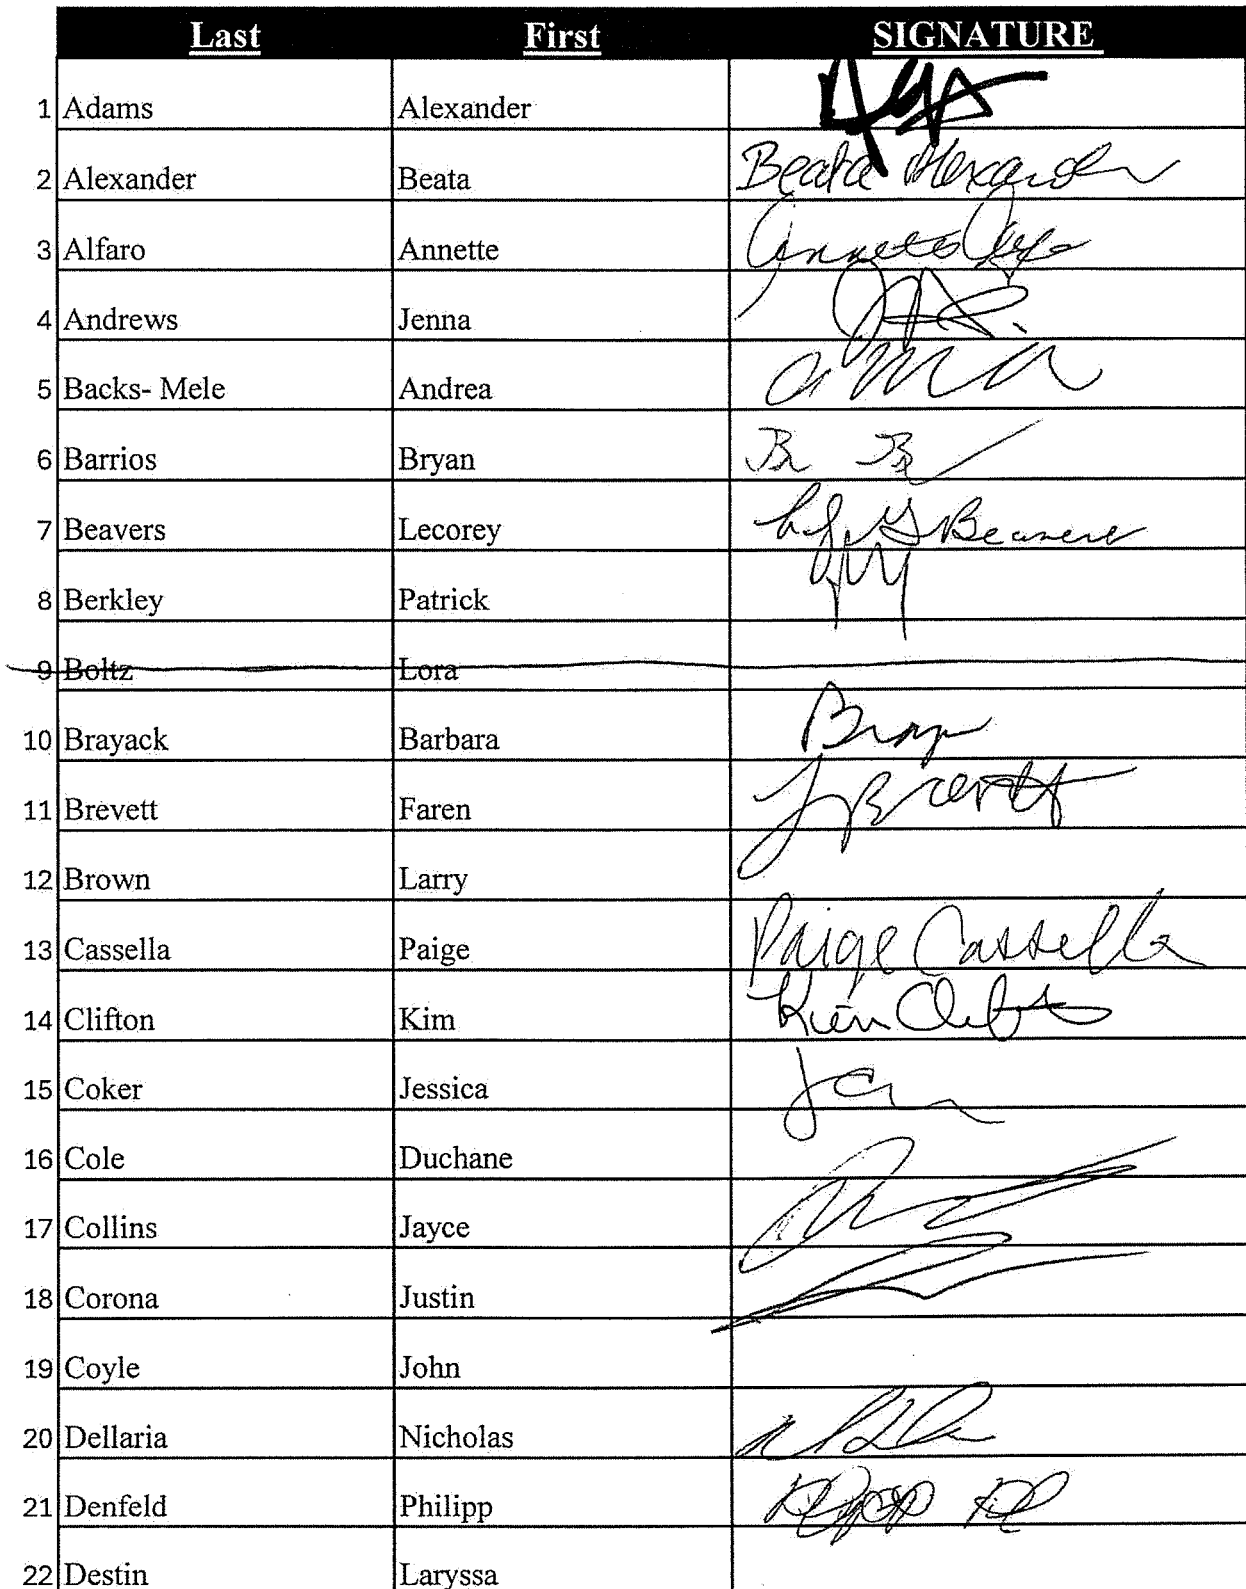 Last First SIGNATURE
1 Adams Alexander
2 Alexander Beata Beata Alexander
3 Alfaro Annette Annette
4 Andrews Jenna
5 Backs- Mele Andrea
6 Barrios Bryan
7 Beavers Lecorey Beavers
8 Berkley Patrick
9 Boltz Lora
10 Brayack Barbara
11 Brevett Faren Brevett
12 Brown Larry
13 Cassella Paige Paige Cassella
14 Clifton Kim Kim
15 Coker Jessica
16 Cole Duchane
17 Collins Jayce
18 Corona Justin
19 Coyle John
20 Dellaria Nicholas
21 Denfeld Philipp
22 Destin Laryssa